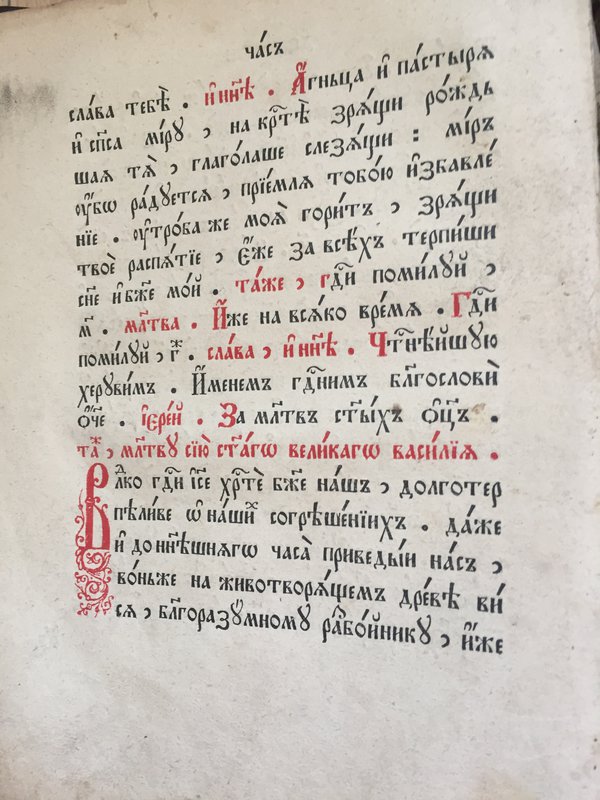 ча́съ
сла́ва тебѣ̀ . и҆ нн҃ѣ . А҆́гньца и҆ па́стырѧ
и҆ сп҃са мі́рꙋ , на крⷭ҇тѣ̀ зрѧ́щи ро́ждь
шаѧ тѧ̀ , глаго́лаше слезѧ́щи : мі́ръ
ᲂу҆́бѡ ра́дуетсѧ , прїе́млѧ тобо́ю и҆збавле́
нїе . ᲂу҆тро́ба же моѧ̀ гори́тъ , зрѧ́щи
твоѐ распѧ́тїе , є҆́же за всѣ́хъ терпи́ши
сн҃е и҆ бж҃е мо́й . та́же , гдⷭ҇и поми́лꙋй ,
м҃ . мл҃тва . И҆́же на всѧ́ко вре́мѧ . Гдⷭ҇и
поми́лꙋй , г҃ . сла́ва , и҆ нн҃ѣ . Чтⷭ҇нѣ́йшую
херꙋви́мъ . И҆́менемъ гдⷭ҇нимъ бл҃гослови̇̀
ѻ҆́ч҃е . і҆ере́й . За мл҃твъ ст҃ы́хъ ѻ҆ц҃ъ .
таⷤ , мл҃твꙋ сїю̀ ст҃а́гѡ вели́кагѡ васи́лїѧ .
Влⷣко гдⷭ҇и і҆с҃е хрⷭ҇тѐ бж҃е на́шъ , долготер
пѣли́ве ѡ҆ на́шиⷯ согрѣше́нїихъ . да́же
и҆ до нн҃ѣшнѧгѡ часа̀ приведы́и на́съ ,
во́ньже на животворѧ́щемъ дре́вѣ ви́
сѧ , бл҃горазꙋ́мномꙋ разбо́йникꙋ , и҆́же